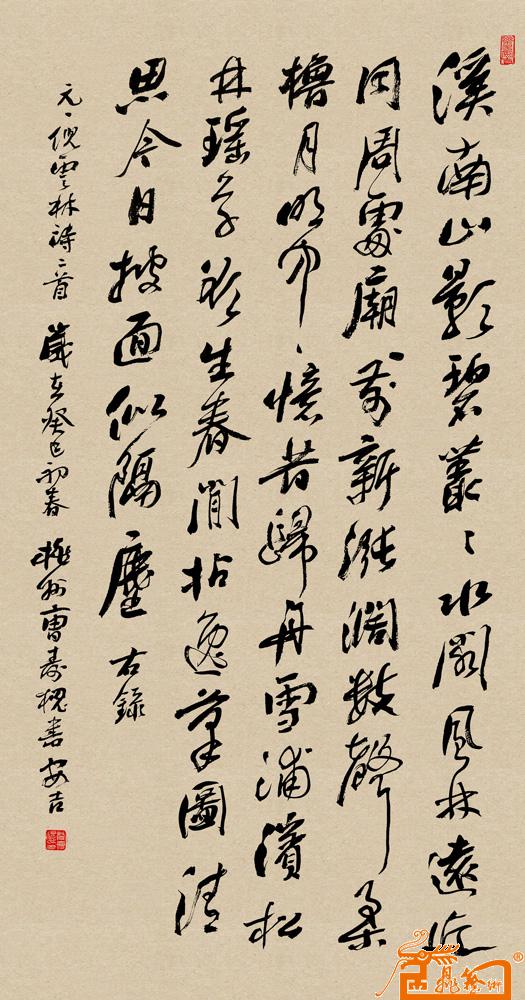 溪南山影碧叢〻水閣風林遠近
同周處廟前新漲闊數聲柔
櫓月明中〻憶昔歸舟雪浦濱松
林瑤草欲生春閒拈逸筆圖清
思今日披圖似隔塵 右錄
元〻倪雲林詩二首 歲在癸巳初春 曹壽槐書 安吉